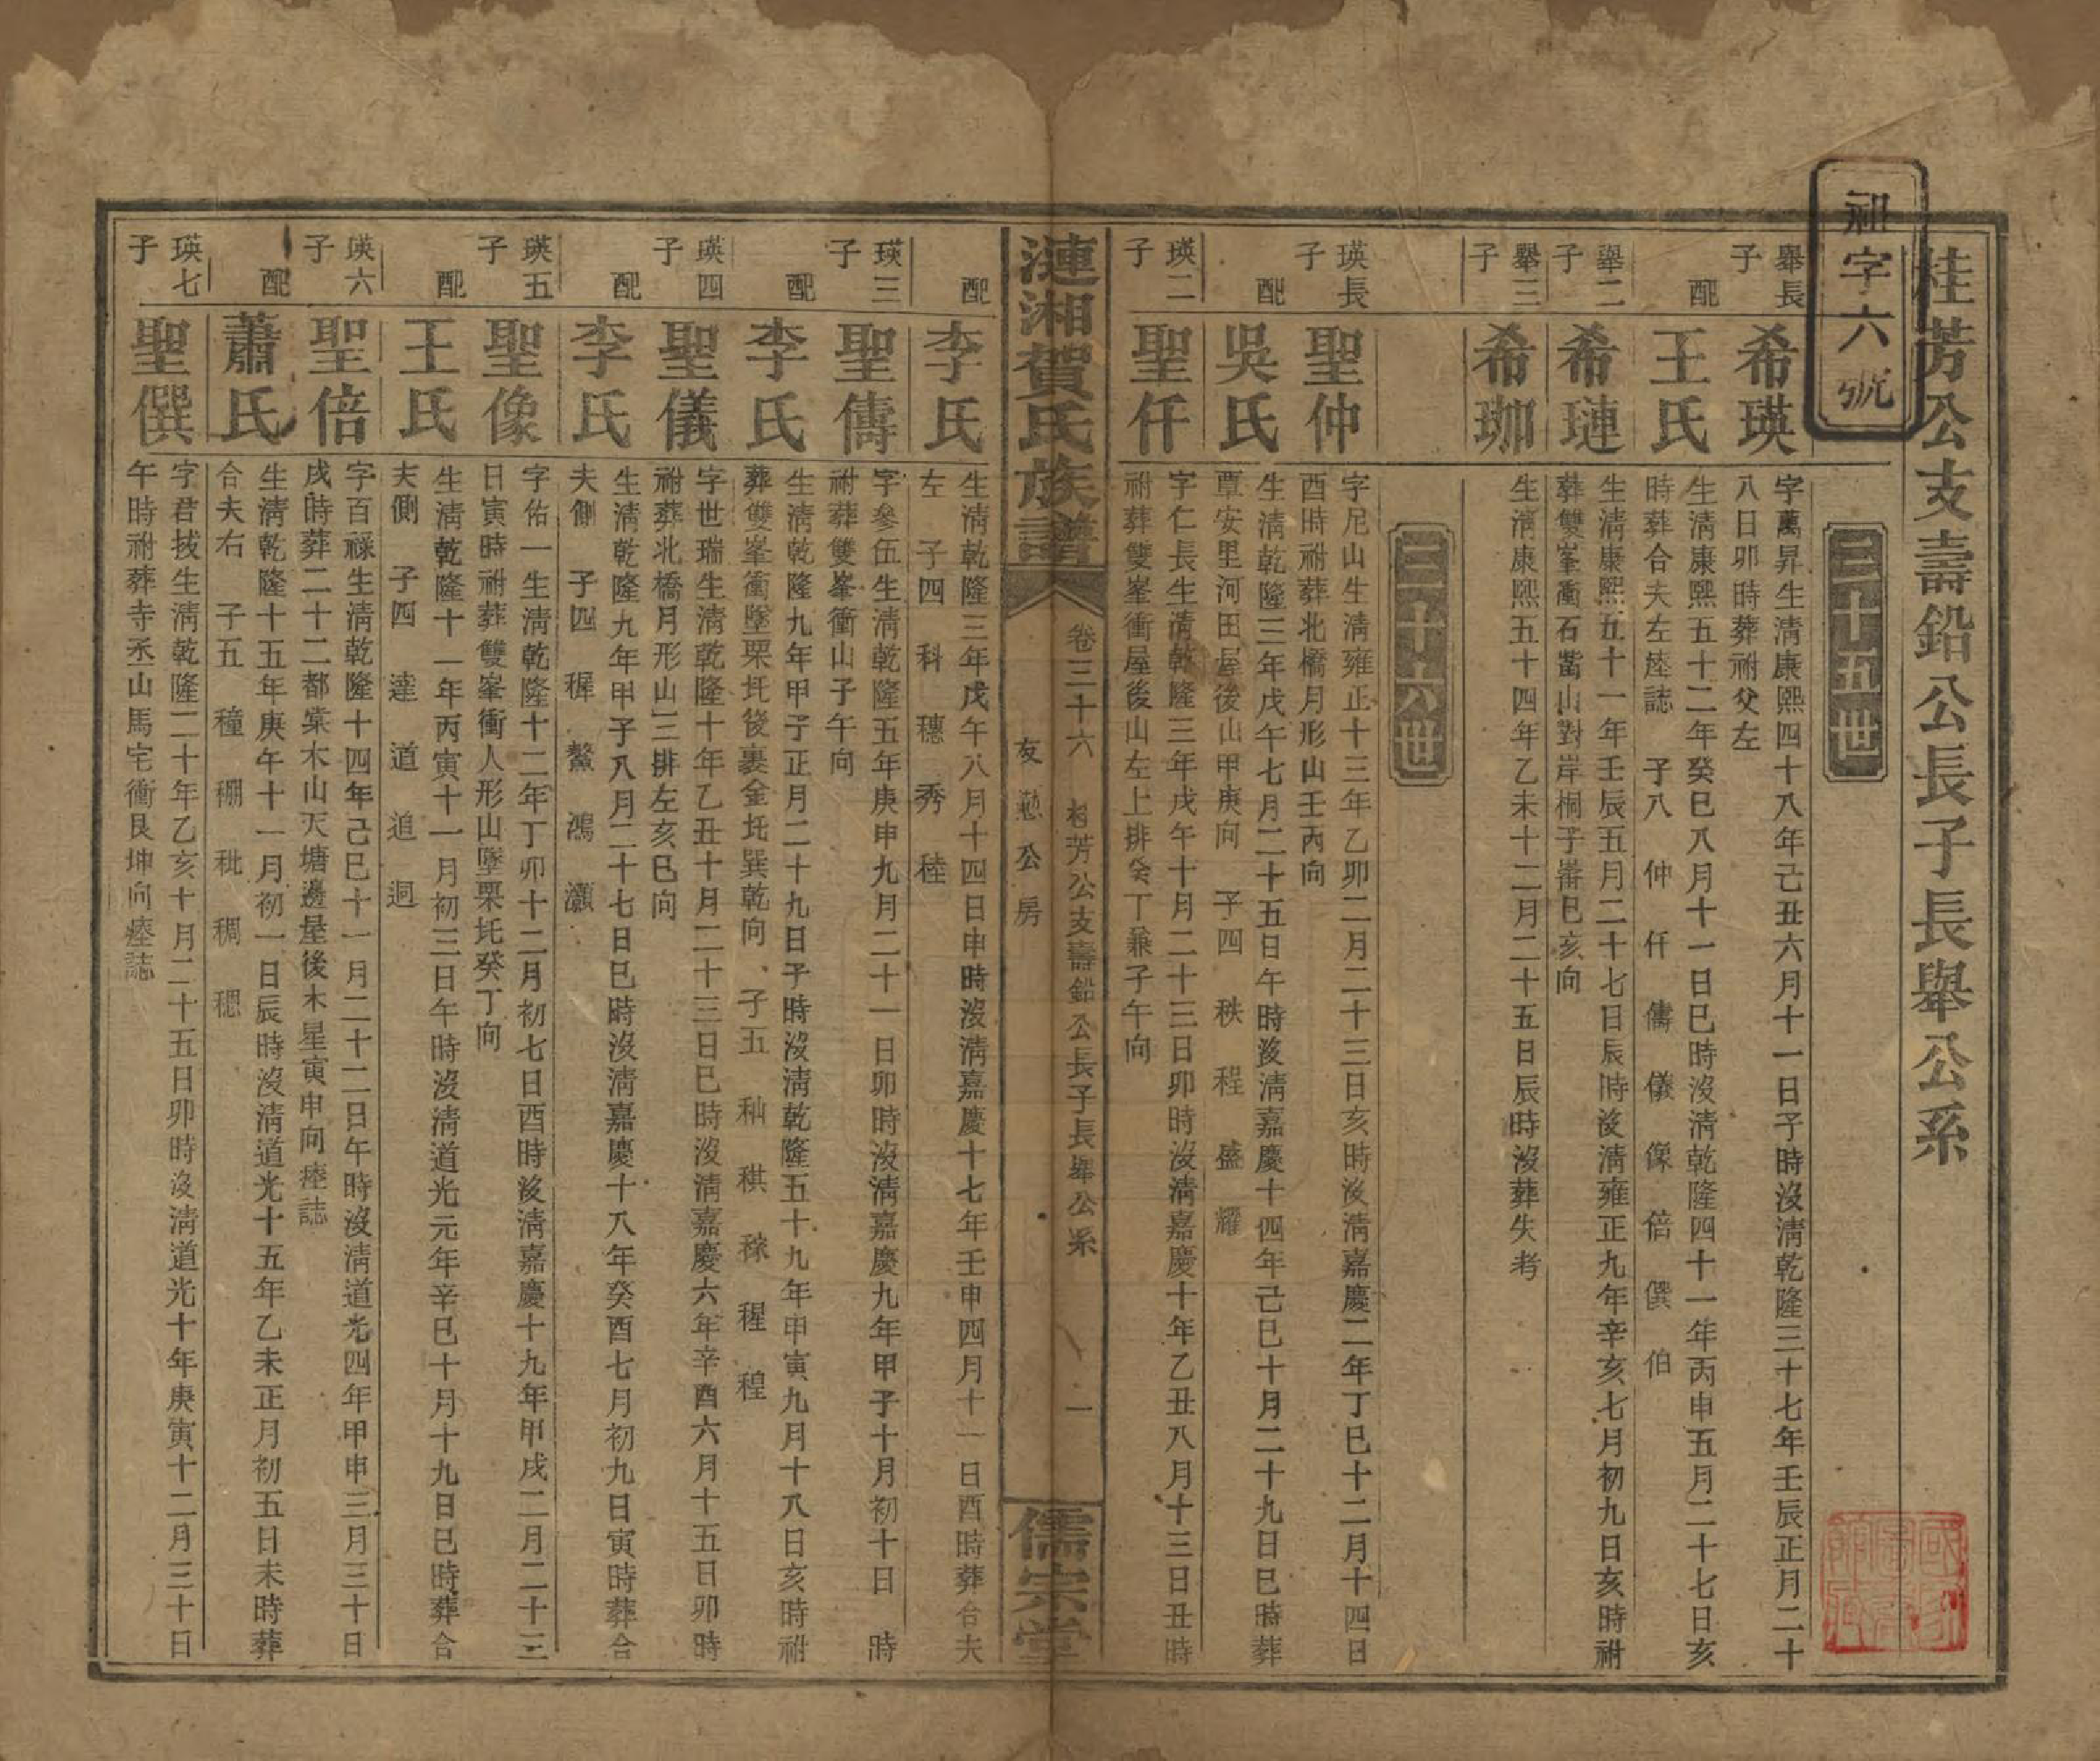 桂芳公支壽鉛公長子長舉公系
祁字六號
三十五世
舉長子
希瑛
字萬昇生淸康熙四十八年己丑六月十一日子時沒淸乾隆三十七年壬辰正月二十
八日卯時葬祔父左
配
王氏
生淸康熙五十二年癸巳八月十一日巳時沒淸乾隆四十一年丙申五月二十七日亥
時葬合夫左䃮誌 子八 仲 仟 儔 儀 像 倍 僎 伯
舉二子
希璉
生淸康熙五十一年壬辰五月二十七日辰時沒淸雍正九年辛亥七月初九日亥時祔
葬雙峯衝石嵩山對岸桐子壽巳亥向
舉三子
希珈
生淸康熙五十四年乙未十二月二十五日辰時沒葬失考
三十六世
瑛長子
聖仲
字尼山生淸雍正十三年乙卯二月二十三日亥時沒淸嘉慶二年丁巳十二月十四日
酉時祔葬北橋月形山壬丙向
配
吳氏
生淸乾隆三年戊午七月二十五日午時沒淸嘉慶十四年己巳十月二十九日巳時葬
覃安里河田屋後山甲庚向 子四 秩 程 盛 耀
瑛二子
聖仟
字仁長生淸乾隆三年戊午十月二十三日卯時沒淸嘉慶十年乙丑八月十三日丑時
祔葬雙峯衝屋後山左上排癸丁兼子午向
漣湘賀氏族譜
卷三十六 桂芳公支壽鉛公長子長舉公系
友懃公房
一
儒宗堂
配
李氏
生淸乾隆三年戊午八月十四日申時沒淸嘉慶十七年壬申四月十一日酉時葬合夫
左 子四 科 穗 秀 稑
瑛三子
聖傳
字參伍生淸乾隆五年庚申九月二十一日卯時沒淸嘉慶九年甲子十月初十日 時
祔葬雙峯衝山子午向
配
李氏
生淸乾隆九年甲子正月二十九日子時沒淸乾隆五十九年甲寅九月十八日亥時祔
葬雙峯衝墜栗坵後裏金坵巽乾向 子五 秈 稘 稼 稺 稑
瑛四子
聖儀
字世瑞生淸乾隆十年乙丑十月二十三日巳時沒淸嘉慶六年辛酉六月十五日卯時
祔葬北橋月形山三排左亥巳向
配
李氏
生淸乾隆九年甲子八月二十七日巳時沒淸嘉慶十八年癸酉七月初九日寅時葬合
夫側 子四 穉 鰲 鴻 灝
瑛五子
聖像
字佑一生淸乾隆十二年丁卯十二月初七日酉時沒淸嘉慶十九年甲戌二月二十三
日寅時祔葬雙峯衝人形山墜栗坵癸丁向
配
王氏
生淸乾隆十一年丙寅十一月初三日午時沒淸道光元年辛巳十月十九日巳時葬合
夫側 子四 達 道 追 迥
瑛六子
聖倍
字百祿生淸乾隆十四年己巳十一月二十二日午時沒淸道光四年甲申三月三十日
戌時葬二十二都棠木山天塘邊屋後木星寅申向䃮誌
配
蕭氏
生淸乾隆十五年庚午十一月初一日辰時沒淸道光十五年乙未正月初五日未時葬
合夫右 子五 穜 稝 秕 稠 穮
瑛七子
聖僎
字君拔生淸乾隆二十年乙亥十月二十五日卯時沒淸道光十年庚寅十二月三十日
午時祔葬寺丞山馬宅衝艮坤向䃮誌